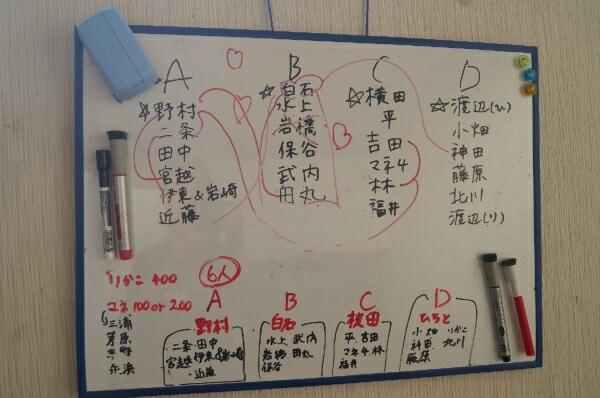 A
☆野村
二条
田中
宮越
伊東&岩崎
近藤
B
☆白石
水上
岩橋
保谷
武内
田丸
C
☆横田
平
吉田
マネ4
林
福井
D
☆渡辺(ひ)
小畑
神田
藤原
北川
渡辺(り)
りかこ 400
6人
マネ100 or 200
三浦
茅原
A
野村
二条 田中
宮越 伊東&岩崎
近藤
B
白石
水上 武内
岩橋 田丸
保谷
C
横田
平 吉田
マネ4 林
福井
D
ひろと
小畑 りかこ
神田 北川
藤原